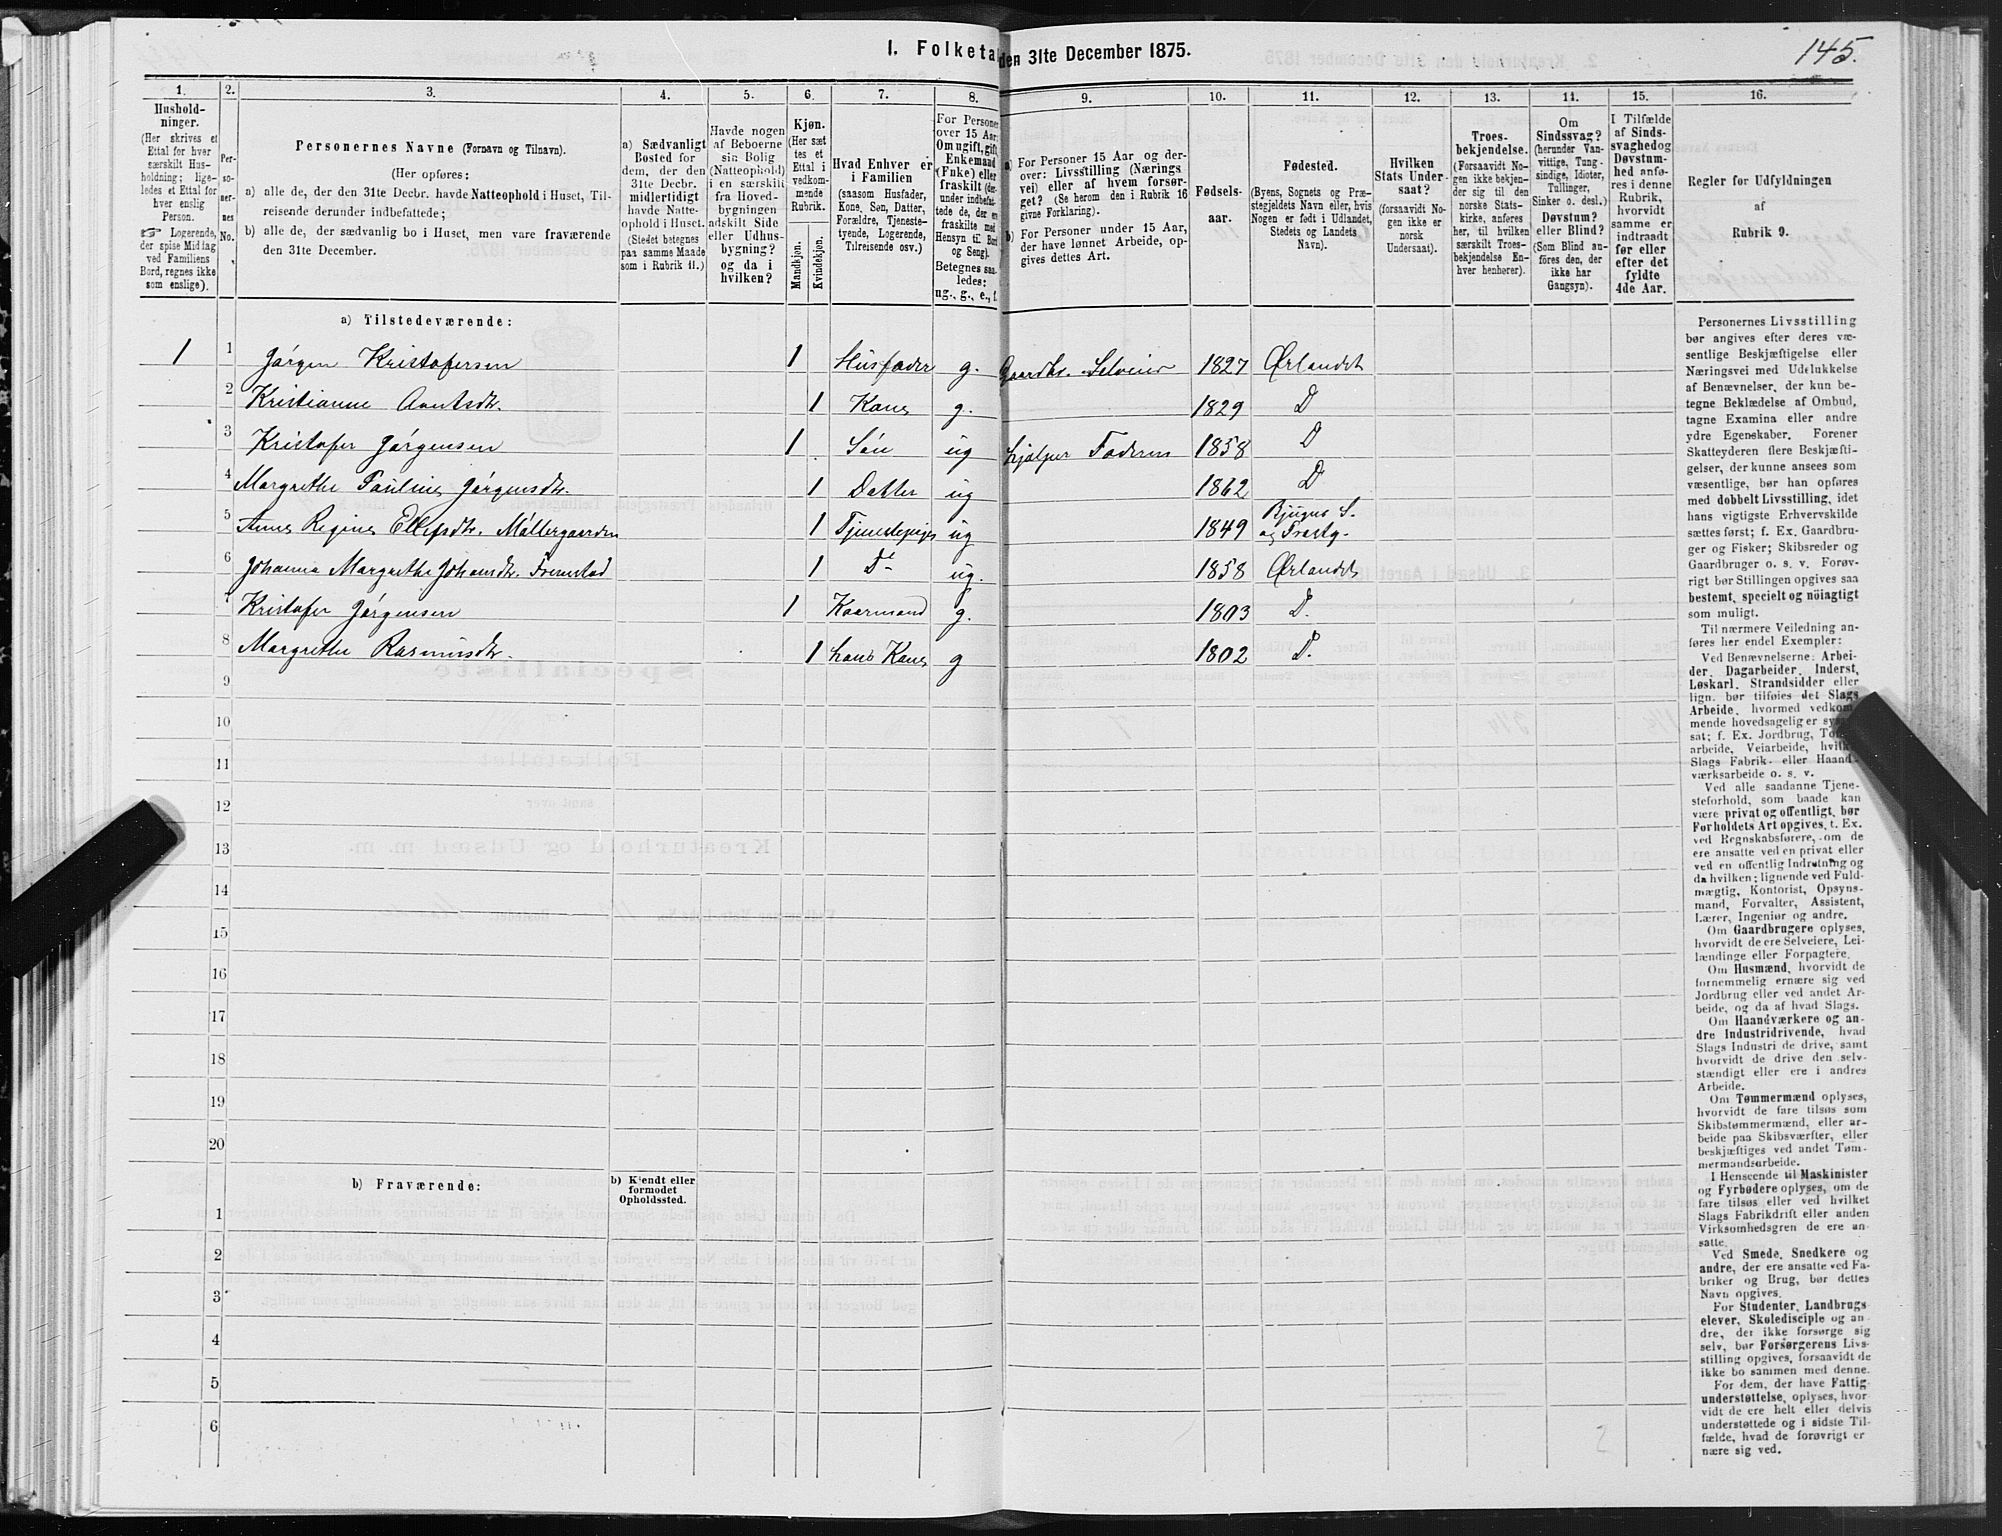 I. Folketa den 31te December 1875.
145.
1.
2.
3.
4.
5.
6.
7.
8.
9.
10.
11.
12.
13.
14.
15.
16.
Hushold-
ninger.
(Her skrives et
Ettal for hver
særskilt Hus-
holdning; lige-
ledes et Ettal for
hver enslig
Person.
☞ Logerende,
der spise Middag
ved Familiens
Bord, regnes ikke
som enslige).
Per-
so-
ner-
nes
No.
Personernes Navne (Fornavn og Tilnavn).
(Her opføres:
a) alle de, der den 31te Decbr. havde Natteophold i Huset, Til-
reisende derunder indbefattede;
b) alle de, der sædvanlig bo i Huset, men vare fraværende
den 31te December.
a) Sædvanligt
Bosted for
dem, der den
31te Decbr.
midlertidigt
havde Natte-
ophold i Huset.
(Stedet betegnes
paa samme Maade
som i Rubrik 11.)
Havde nogen
af Beboerne
sin Bolig
(Natteophold)
i en særskilt
fra Hoved-
bygningen
adskilt Side
eller Udhus-
bygning?
og da i
hvilken?
Kjøn.
(Her sæt
tes et
Ettal i
vedkom-
mende
Rubrik.
Mandkjøn.
Kvindekjøn.
Hvad Enhver er
i Familien
(saasom Husfader,
Kone, Søn, Datter,
Forældre, Tjeneste-
tyende, Logerende,
Tilreisende osv.)
For Persone
over 15 Aar,
Om ugift, gift,
Enkemand
(Enke) eller
fraskilt (der-
under indbefat-
tede de, der er
fraskilte med
Hensyn til Bord
og Seng).
Betegnes saa-
ledes:
ug., g., e., f.
a) For Personer 15 Aar og der-
over: Livsstilling (Nærings
vei) eller af hvem forsør-
get? (Se herom den i Rubrik 16
givne Forklaring).
b) For Personer under 15 Aar,
der have lønnet Arbeide, op-
gives dettes Art.
Fødsels-
aar.
Fødested.
(Byens, Sognets og Præ-
stegjeldets Navn eller, hvis
Nogen er født i Udlandet,
Stedets og Landets
Navn).
Hvilken
Stats Under-
saat?
(forsaavidt No-
gen ikke er
norsk
Undersaat).
Troes-
bekjendelse.
(Forsaavidt No-
gen ikke bekjen-
der sig til den
norske Stats-
kirke, anføres
her, til hvilken
særskilt Troes-
bekjendelse En-
hver henhører).
Om
Sindssvag?
(herunder Van-
vittige, Tung-
sindige, Idioter,
Tullinger,
Sinker o. desl.)
Døvstum?
eller Blind?
(Som Blind an-
føres den, der
ikke har
Gangsyn).
I Tilfælde
af Sinds-
svaghed og
Døvstum-
hed anfø-
res i denne
Rubrik,
hvorvidt
samme er
indtraadt
før eller
efter det
fyldte
4de Aar.
Regler før Udfyldningen
af
Rubrik 9.
a) Tilstedeværende:
1 1 Jørgen Kristofersen 1 Husfader g. Gaardbr. Selveier 1827 Ørlandet
2 Kristianne Arntsdtr. 1 Kone g. 1829 D
3 Kristofer Jørgensen 1 Søn ug hjælper Faderen 1858 D
4 Margrethe Pauline Jørgensdtr. 1 Datter ug 1862 D
5 Anne Regine Ellefsdtr. Møllergaarden 1 Tjenestepige ug 1849 Bjugns S. og
6 Johanna Margrethe Johansdtr. 1 Do ug. 1858 Ørlandet
7 Kristofer Jørgensen 1 Kaarmand g. 1803 D.
8 Margrethe Rasmusdtr. 1 hans Kone g 1802 D.
9
10
11
12
13
14
15
16
17
18
19
20
b) Fraværende:
b) Kjendt eller
formodet
Opholdssted.
1
2
3
4
5
6
Personernes Livsstilling
bør angives efter deres væ-
sentlige Beskjæftigelse eller
Næringsvei med Udelukkelse
af Benævnelser, der kun be-
tegne Beklædelse af Ombud,
tagne Examina eller andre
ydre Egenskaber. Forener
Skatteyderen flere Beskjæfti-
gelser, der kunne ansees som
væsentlige, bør han opføres
med dobbelt Livsstilling, idet
hans vigtigste Erhvervskilde
sættes først; f. Ex. Gaardbru-
ger og Fisker; Skibsreder og
Gaardbruger o. s. v. Forøv-
rigt bør Stillingen opgives saa
bestemt, specielt og nöiagtigt
som muligt.
Til nærmere Veiledning an-
føres her endel Exempler:
Ved Benævnelserne: Arbei-
der, Dagarbeider, Inderst,
Løskarl, Strandsidder eller
lign. bør tilføies det Slags
Arbeide, hvormed vedkom-
mende hovedsagelig er syssel-
sat; f. Ex. Jordbrug, Tom
arbeide, Veiarbeide, hvilke
Slags Fabrik- eller Haand-
værksarbeide o. s. v.
Ved alle saadanne Tjene-
steforhold, som baade kan
være privat og offentligt, bør
Forholdets Art opgives, t. Ex.
ved Regnskabsførere, om de
ere ansatte ved en privat eller
ved en offentlig Indretning og
da hvilken; lignende ved Fuld-
mægtig, Kontorist, Opsyns-
mand, Forvalter, Assistent,
Lærer, Ingeniør og andre.
Om Gaardbrugere oplyses,
hvorvidt de ere Selveiere, Lei-
lændinge eller Forpagtere.
Om Husmænd, hvorvidt de
fornemmelig ernære sig ved
Jordbrug eller ved andet Ar-
beide, og da af hvad Slags.
Om Haandværkere og an-
dre Industridrivende, hvad
Slags Industri de drive, samt
hvorvidt de drive den selv-
stændigt eller ere i andres
Arbeide.
Om Tømmermænd oplyses,
hvorvidt de fare tilsøs som
Skibstømmermænd, eller ar-
beide paa Skibsværfter, eller
beskjæftiges ved andet Tøm-
mermandsarbeide.
I Henseende til Maskinister
og Fyrbødere oplyses, om de
fare tilsøs eller ved hvilket
Slags Fabrikdrift eller anden
Virksomhedsgren de ere an-
satte.
Ved Smede, Snedkere og
andre, der ere ansatte ved Fa-
briker og Brug, bør dettes
Navn opgives.
For Studenter, Landbrugs
elever, Skoledisciple og an
dre, der ikke forsørge sig
selv, bør Forsørgerens Livs-
stilling opgives, forsaavidt de
ikke bo sammen med denne.
For dem, der have Fattig
understøttelse, oplyses, hvor
vidt de ere helt eller delvis
understøttede og i sidste Til-
fælde, hvad de forøvrigt er
nære sig ved.
2